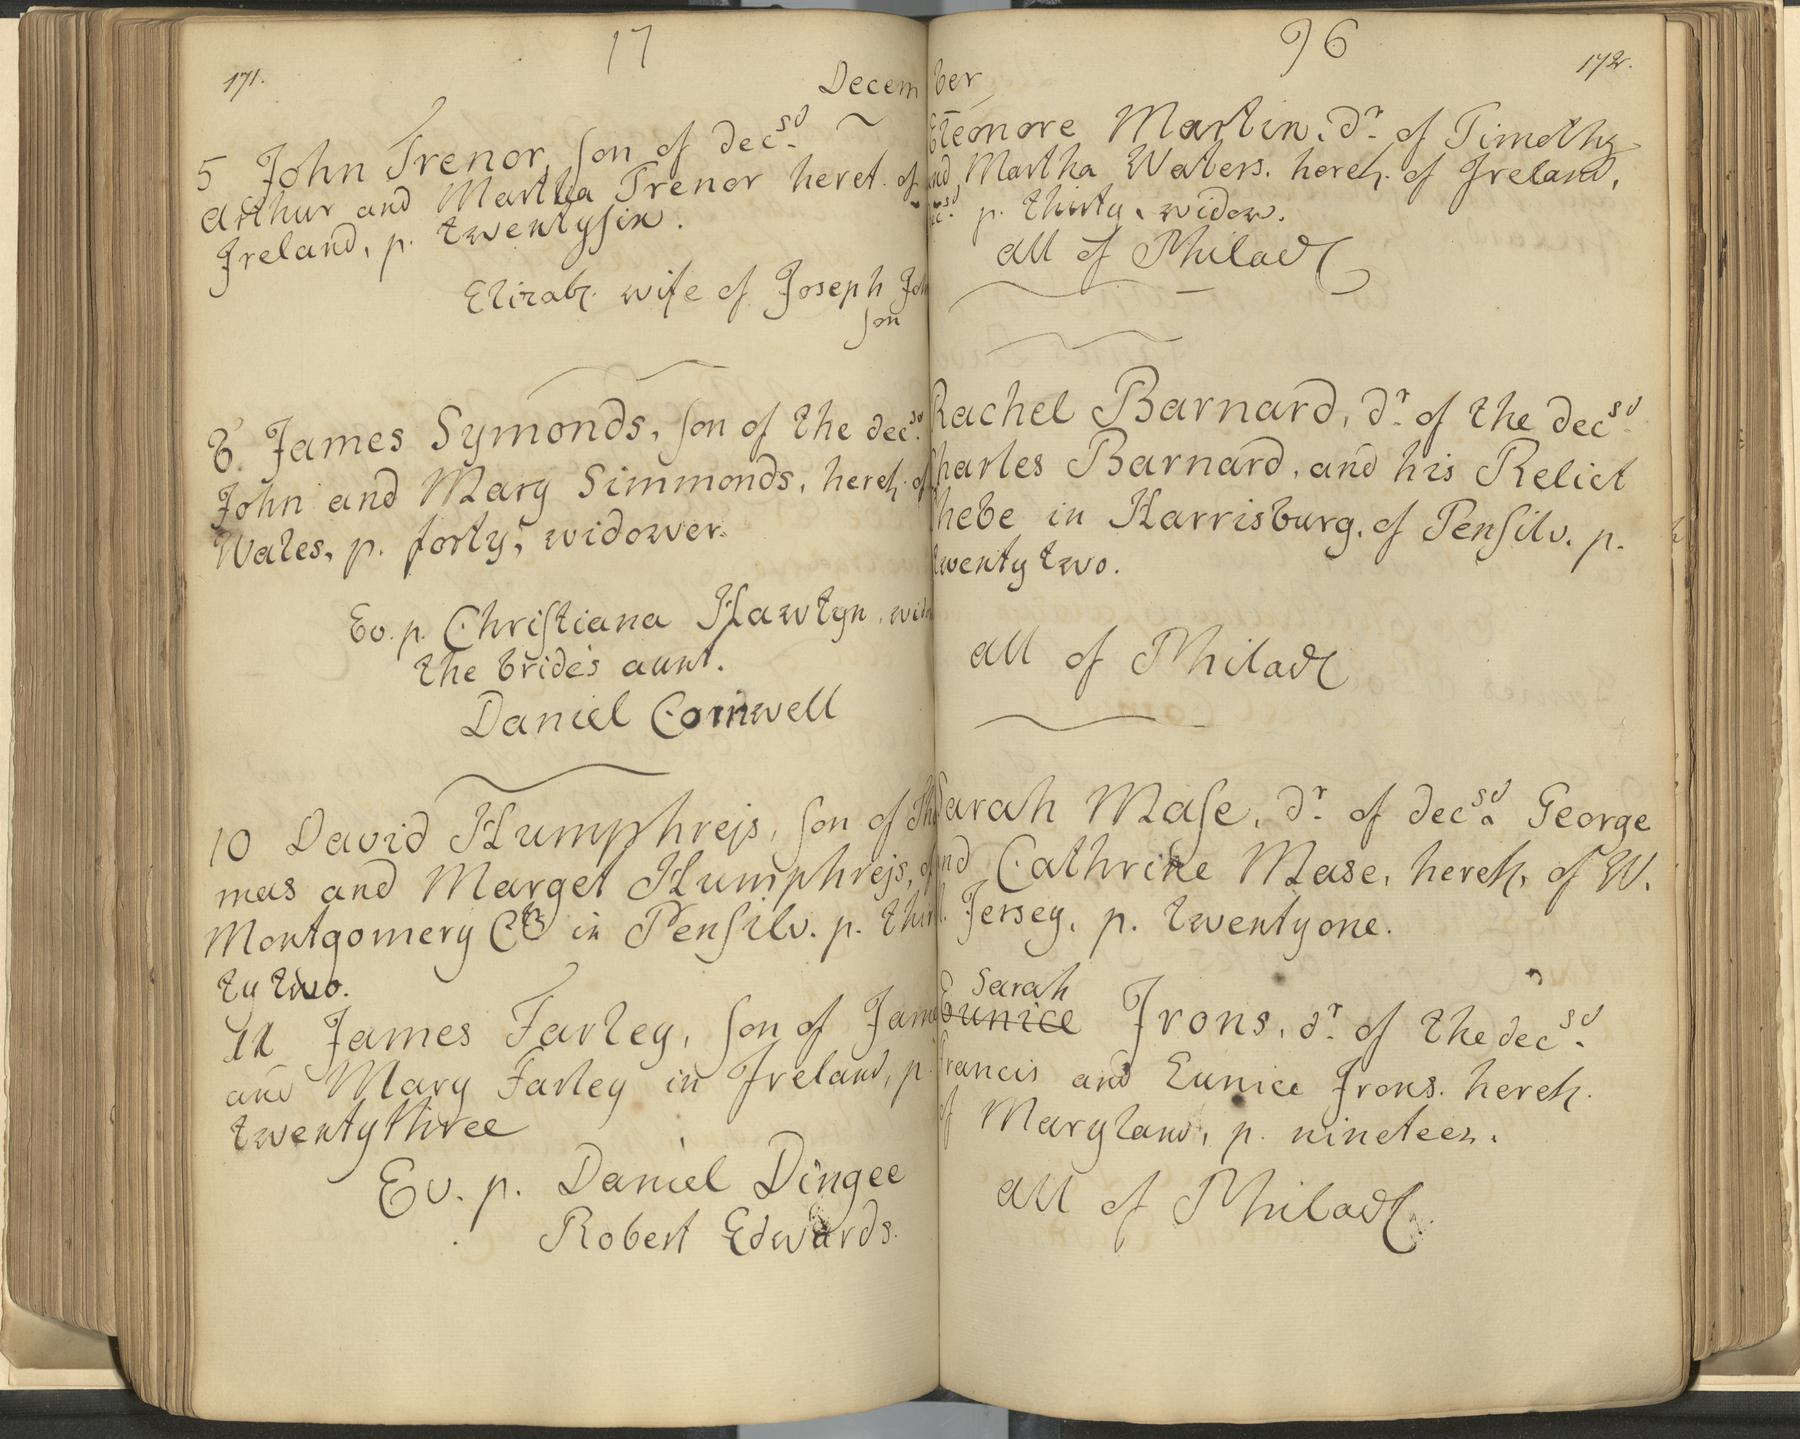 171.
17
Decem
5 John Trenor, son of decsd
Arthur and Martha Trenor heret. of
Ireland, p. twentysix.
Elizabz. wife of Joseph John
son
6. James Symonds, son of the decsd
John and Mary Simmonds, heret. of
Wales, p. forty, widower.
Ev. p. Christiana Hawtyn, wid
the bride's aunt.
Daniel Cornwell
10 David Humphrejs, son of Tho
mas and Marget Humphrejs, of
Montgomery Cty in Pensilv. p. thir
ty two.
11 James Farley, son of James
and Mary Farley in Ireland, p.
twentythree
Ev. p. Daniel Dingee
Robert Edwards.
96
172.
ber
Eleonore Martin, dr. of Timothy
and Martha Waters, heret. of Ireland,
decsd. p. thirty, widow.
all of Philad
Rachel Barnard, dr. of the decsd
Charles Barnard, and his Relict
Phebe in Harrisburg, of Pensilv. p.
twenty two.
all of Philad
Sarah Mase, dr. of decsd George
and Cathrine Mase, heret. of W.
Jersey, p. twentyone.
Sarah
Eunice Irons, dr. of the decsd
Francis and Eunice Irons. heret.
of Maryland, p. nineteen.
all of Philad